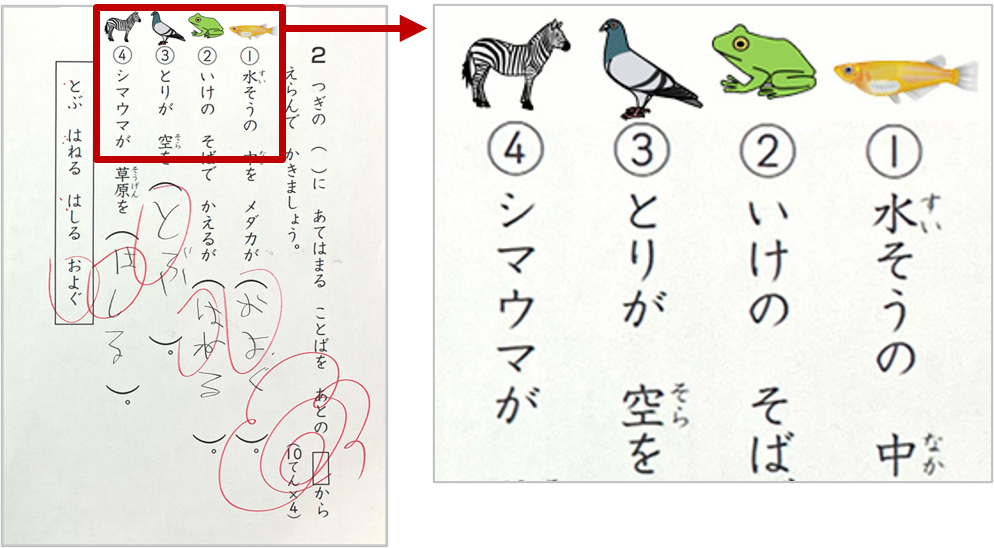 2 つぎの ( )に あてはまる ことばを あとの □から
えらんで かきましょう。 (10てん×4)
① 水そうの 中を メダカが (およぐ)。
すい なか
② いけの そばで かえるが (はねる)。
③ とりが 空を (とぶ)。
そら
④ シマウマが 草原を (はしる)。
そうげん
とぶ はねる はしる およぐ
① 水そうの 中
すい なか
② いけの そば
③ とりが 空を
そら
④ シマウマが